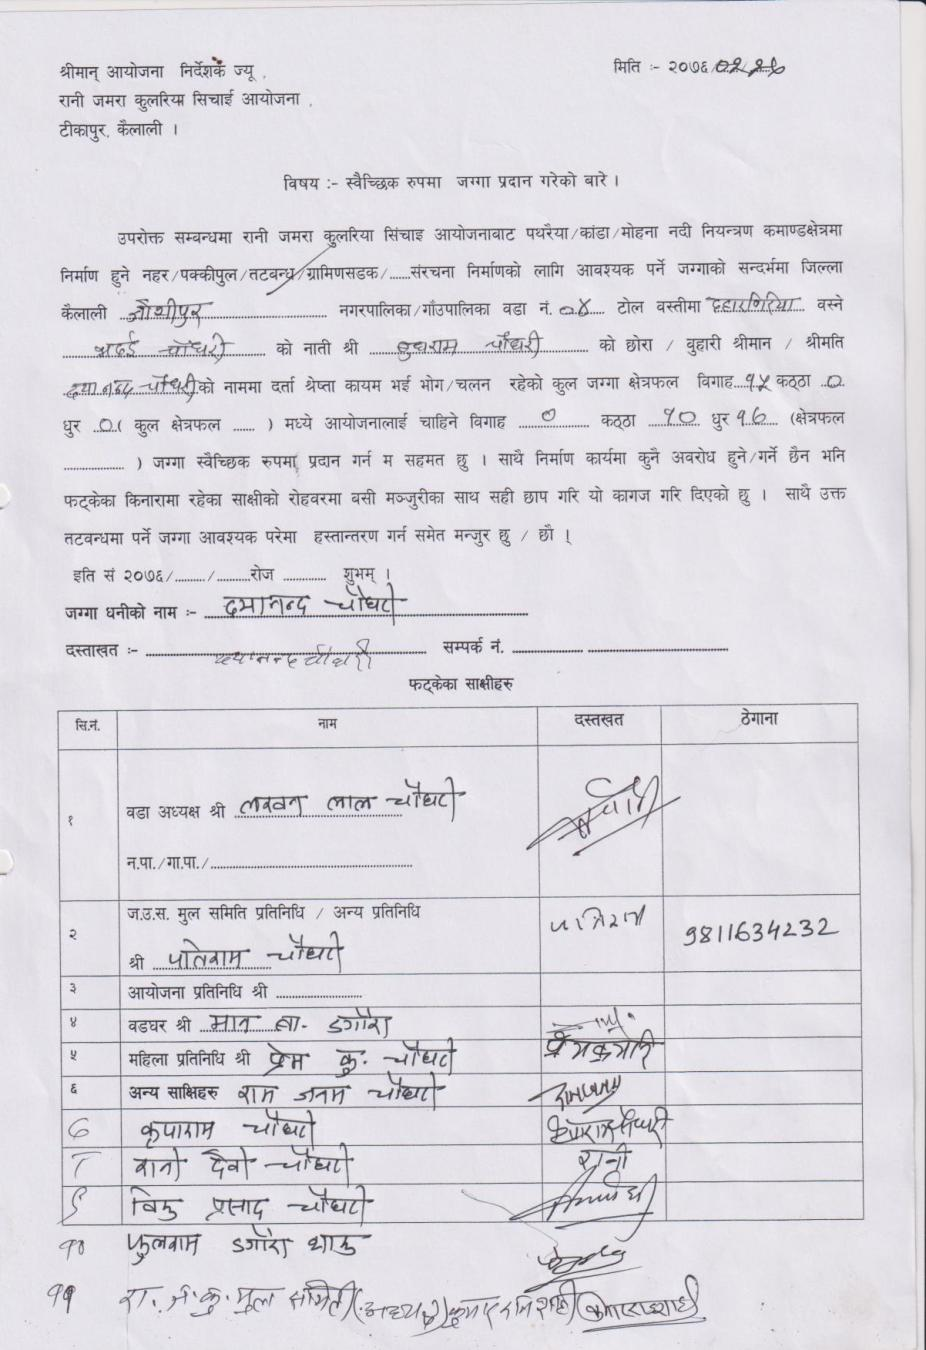 श्रीमान् आयोजना निर्देशक ज्यू ,
मिति :- २०७६/०२/२६
रानी जमरा कुलरिया सिचाई आयोजना ,
टीकापुर, कैलाली ।
विषय :- स्वैच्छिक रुपमा जग्गा प्रदान गरेको बारे ।
उपरोक्त सम्बन्धमा रानी जमरा कुलरिया सिंचाइ आयोजनाबाट पथरैया/कांडा/मोहना नदी नियन्त्रण कमाण्डक्षेत्रमा
निर्माण हुने नहर/पक्कीपुल/तटबन्ध/ग्रामिणसडक/......संरचना निर्माणको लागि आवश्यक पर्ने जग्गाको सन्दर्भमा जिल्ला
कैलाली जोशीपुर नगरपालिका/गाँउपालिका वडा नं. ०४ टोल वस्तीमा वस्ने
चौधरी को नाती श्री बुधराम चौधरी को छोरा / बुहारी श्रीमान / श्रीमति
दयानन्द चौधरी को नाममा दर्ता श्रेप्ता कायम भई भोग/चलन रहेको कुल जग्गा क्षेत्रफल विगाह १५ कठ्ठा ०
धुर ०( कुल क्षेत्रफल ...... ) मध्ये आयोजनालाई चाहिने विगाह ० कठ्ठा १० धुर १६ (क्षेत्रफल
................ ) जग्गा स्वैच्छिक रुपमा प्रदान गर्न म सहमत छु । साथै निर्माण कार्यमा कुनै अवरोध हुने/गर्ने छैन भनि
फट्केका किनारामा रहेका साक्षीको रोहवरमा बसी मञ्जुरीका साथ सही छाप गरि यो कागज गरि दिएको छु । साथै उक्त
तटबन्धमा पर्ने जग्गा आवश्यक परेमा हस्तान्तरण गर्न समेत मन्जुर छु / छौ ।
इति सं २०७६/........./..........रोज ............ शुभम् ।
जग्गा धनीको नाम :- दयानन्द चौधरी
दस्ताखत :- दयानन्द चौधरी सम्पर्क नं. ....................
फट्केका साक्षीहरु
सि.नं. नाम दस्तखत ठेगाना
१ वडा अध्यक्ष श्री लखन लाल चौधरी
न.पा./गा.पा./..................................................
२ ज.उ.स. मुल समिति प्रतिनिधि / अन्य प्रतिनिधि
श्री पतिराम चौधरी पतिराम 9811634232
३ आयोजना प्रतिनिधि श्री ......................
४ वडघर श्री मान ब. डगौरा
५ महिला प्रतिनिधि श्री प्रेम कु. चौधरी प्रेमकुमारी
६ अन्य साक्षिहरु राम जनम चौधरी रामजनम
७ कृपाराम चौधरी कृपाराम चौधरी
८ रानी देवी चौधरी रानी
९ विष्णु प्रसाद चौधरी
१० फुलराम डगौरा थारु
११ रा.ज.कु. मुल समिति (अध्यक्ष)